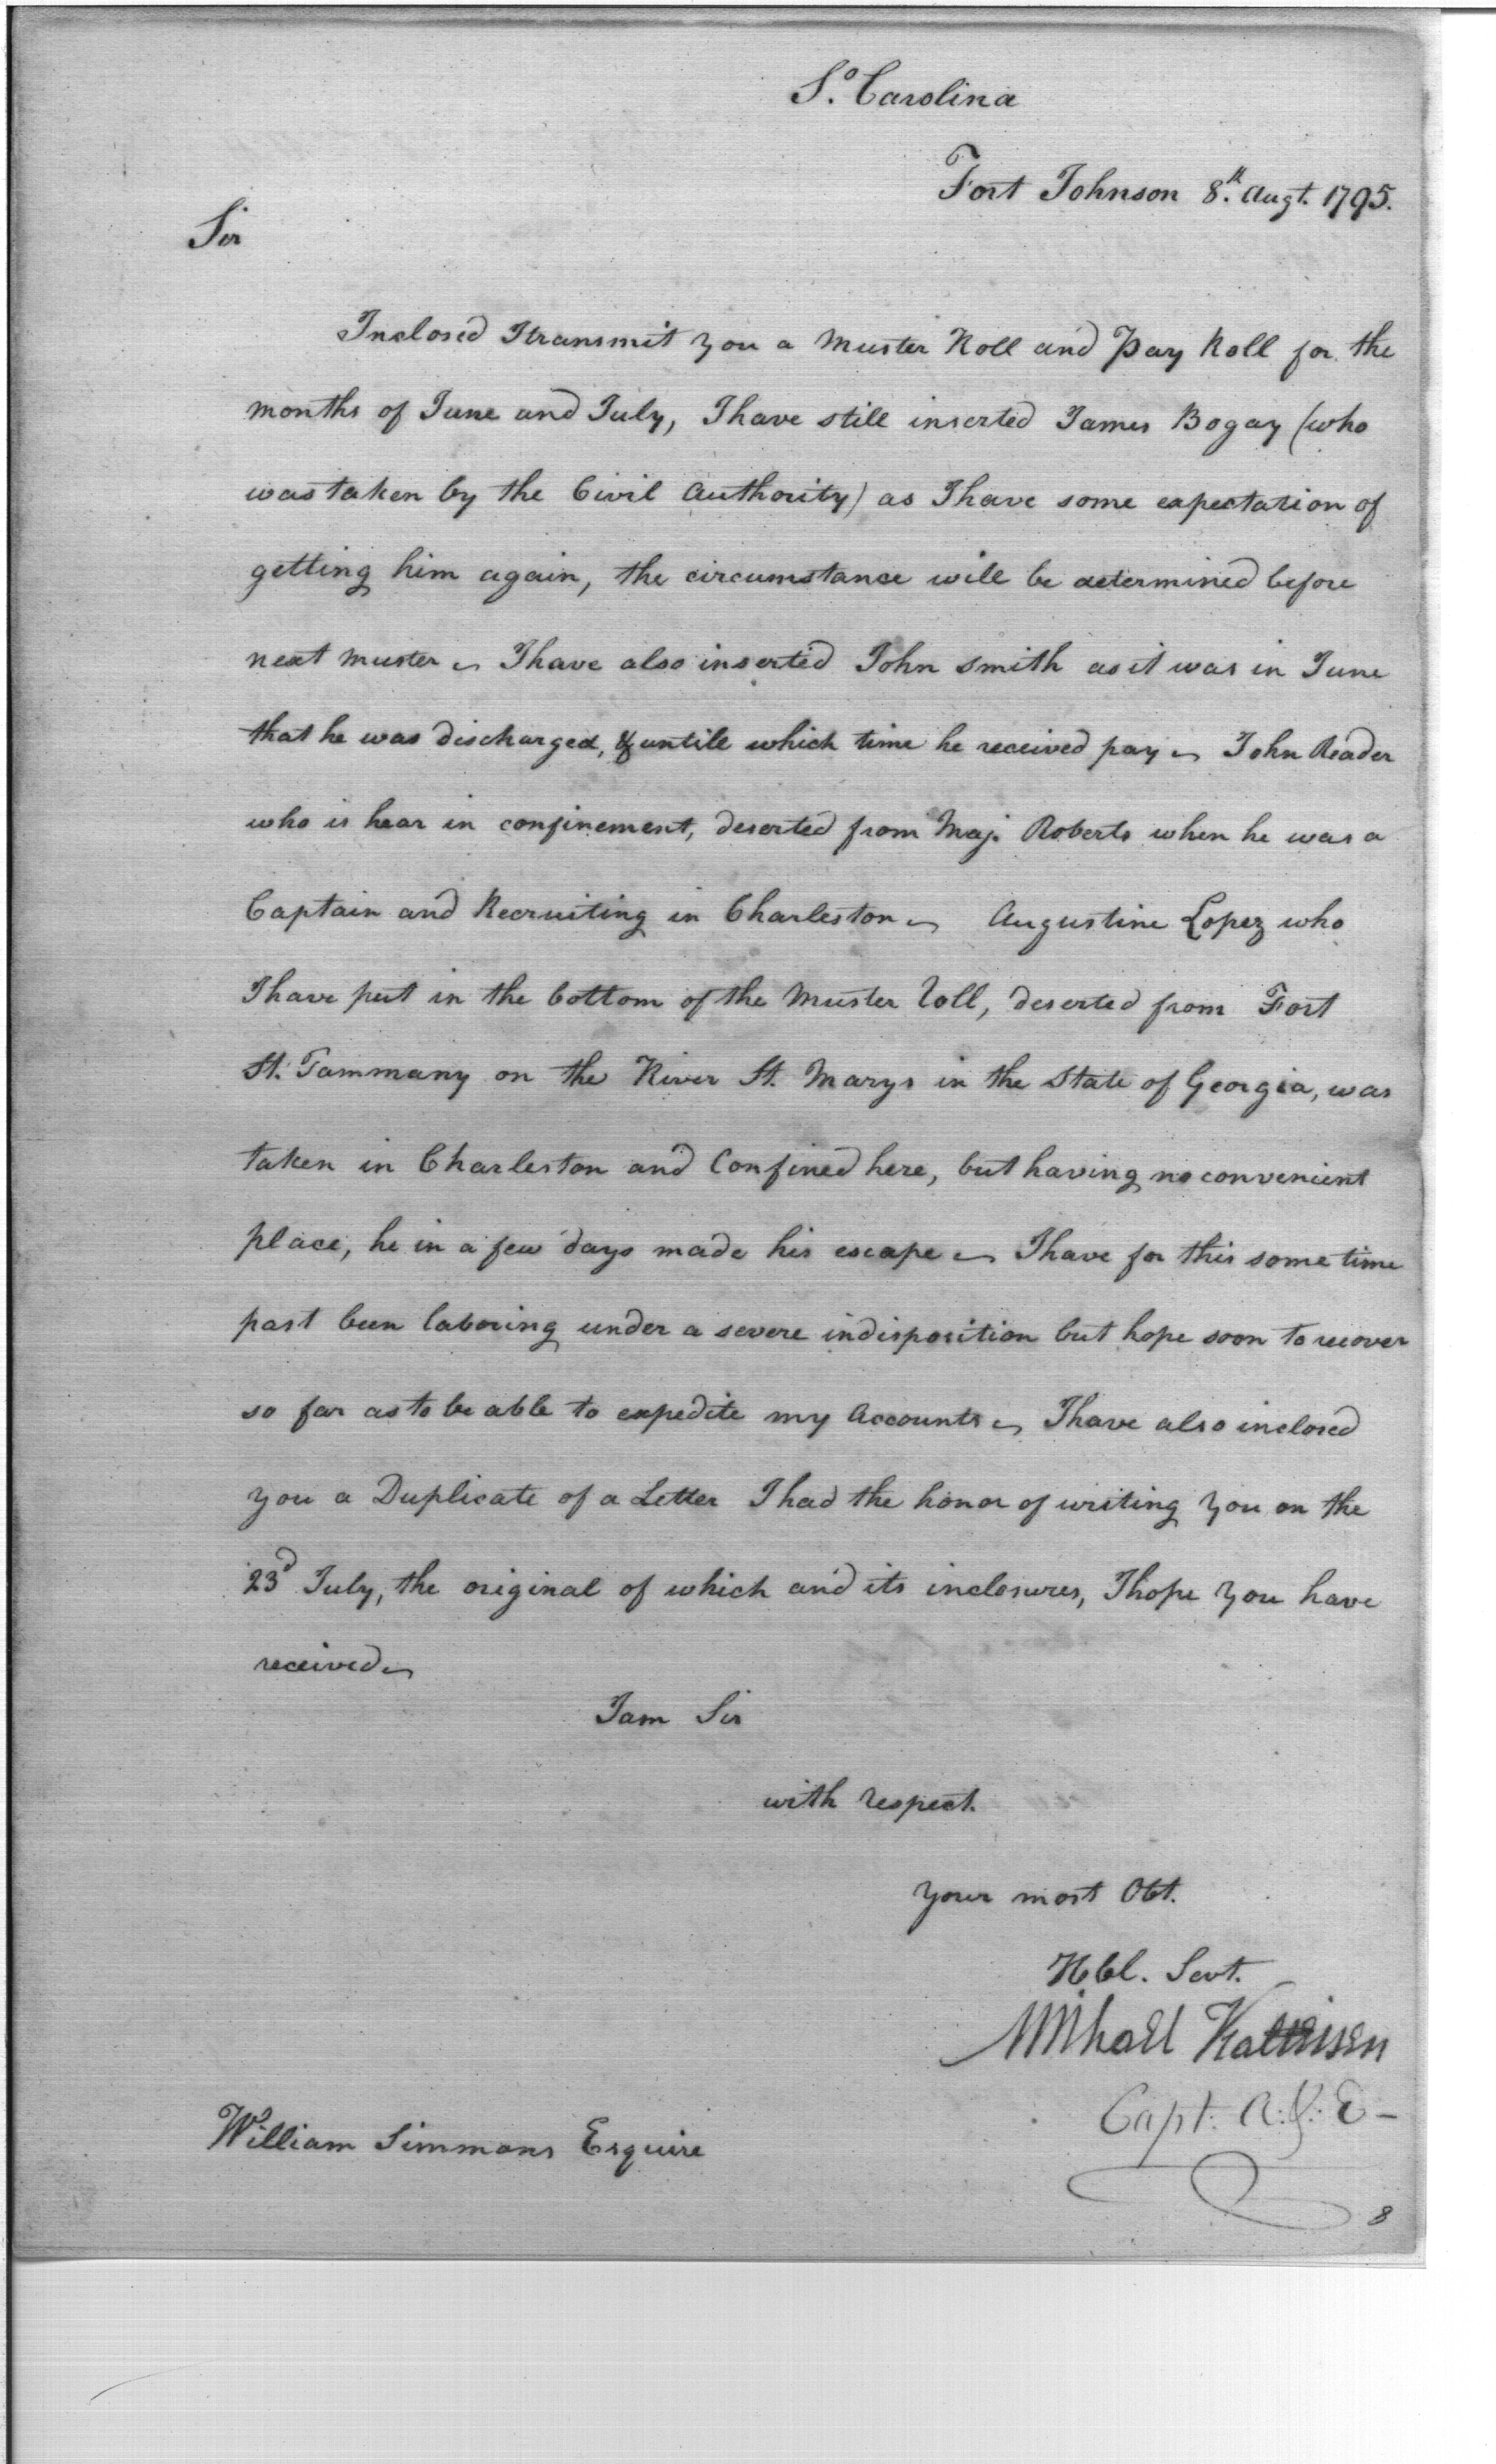 So. Carolina
Fort Johnson 8th. Augt. 1795.
Sir
Inclosed I transmit you a Muster Roll and Pay Roll for the
months of June and July, I have still inserted James Bogay (who
was taken by the Civil Authority) as I have some expectation of
getting him again, the circumstance will be determined before
next muster ~ I have also inserted John Smith as it was in June
that he was discharged, & untill which time he received pay ~ John Reader
who is hear in confinement, deserted from Maj. Roberts when he was a
Captain and Recruiting in Charleston ~ Augustine Lopez who
I have put in the bottom of the Muster Roll, deserted from Fort
St. Tammany on the River St. Marys in the State of Georgia, was
taken in Charleston and Confined here, but having no convenient
place, he in a few days made his escape ~ I have for this some time
past been laboring under a severe indisposition but hope soon to recover
so far as to be able to expedite my Accounts ~ I have also inclosed
you a Duplicate of a Letter I had the honor of writing you on the
23d July, the original of which and its inclosures, I hope you have
received ~
I am Sir
with respect.
your most Obt.
Hbl. Servt.
Michael Kalteisen
Capt. A. & E -
William Simmons Esquire
8